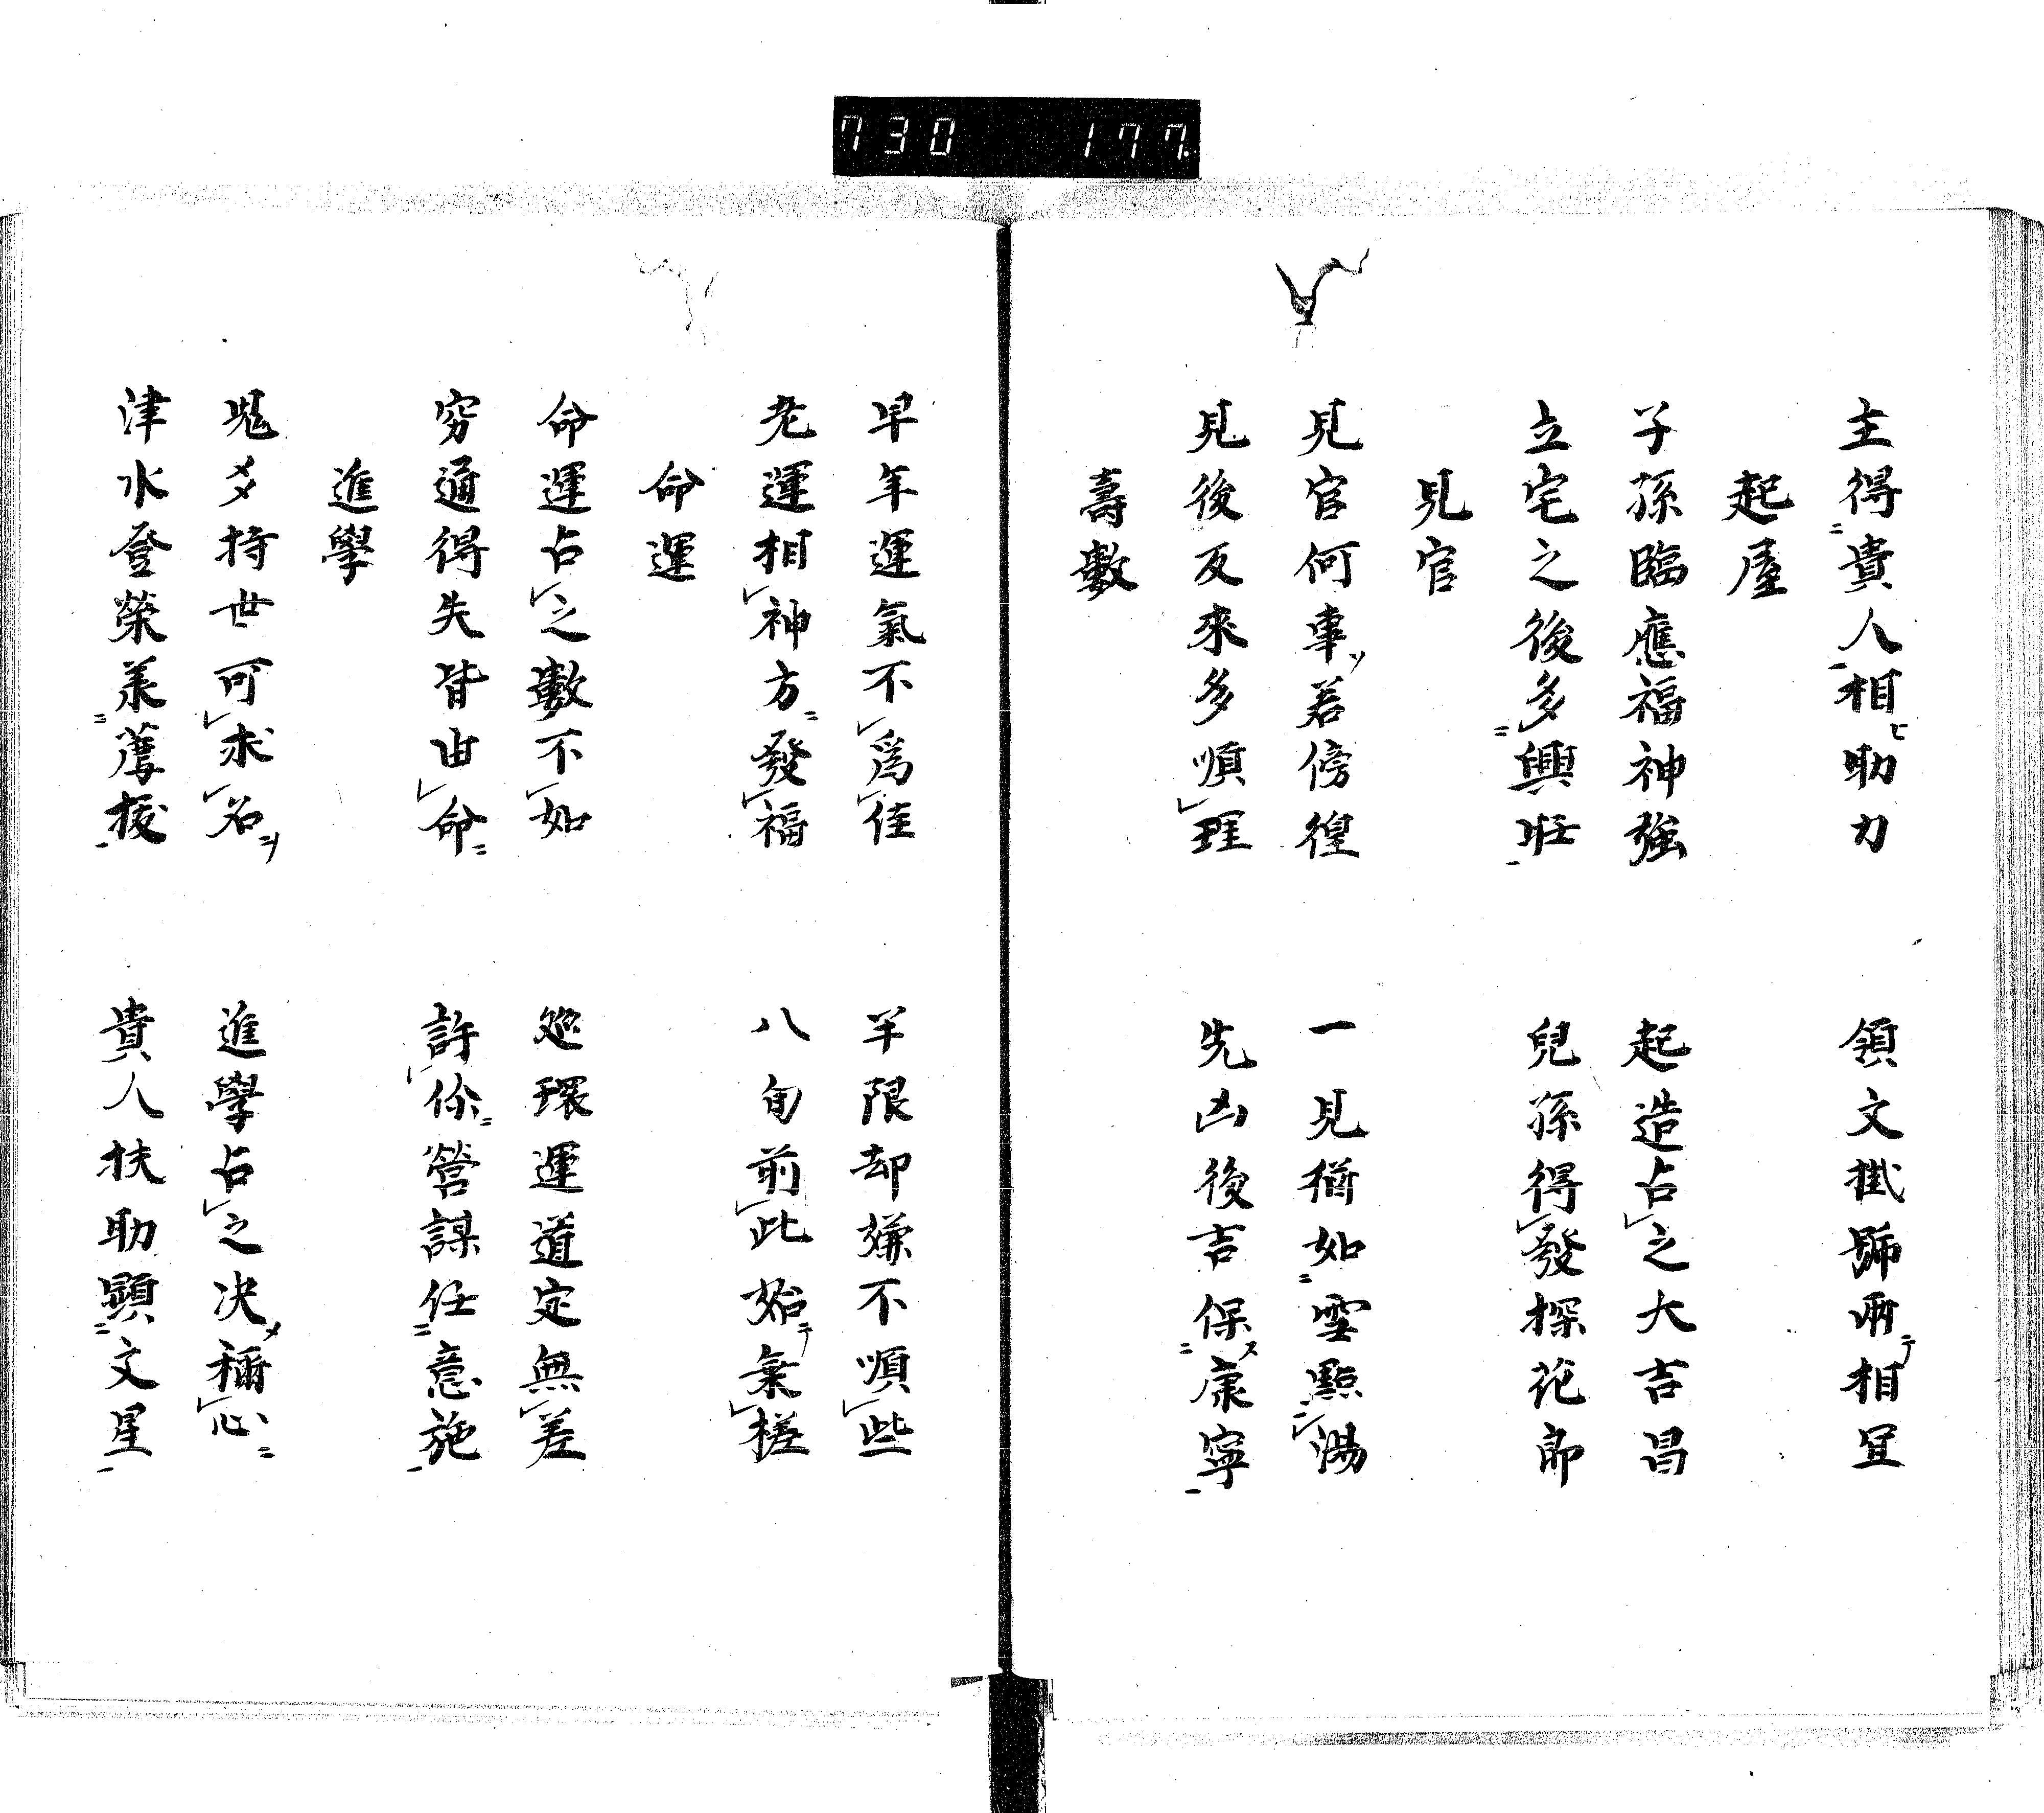 730 177
主得貴人相助力 領文掛號兩相宜
起屋
子孫臨應福神強 起造占之大吉昌
立宅之後多興旺 兒孫得發探花郎
見官
見官何事若傍徨 一見猶如雪點湯
見後反來多順理 先凶後吉保康寧
壽數
早年運氣不爲佳 羊限却嫌不順些
老運相神方發福 八旬前此始乘槎
命運
命運占之數不如 巡環運道定無差
窮通得失皆由命 許你營謀任意施
進學
鬼爻持世可求名 進學占之決稱心
津水登榮美薦拔 貴人扶助顕文星